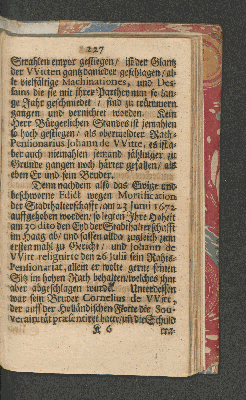 227
Strahlen empor gestiegen / ist der Glantz
der VVitten gantz danieder geschlagen / al-
le vielfältige Machinationes, und Des-
seins die sie mit ihrer Parthey nun so lan-
ge Jahr geschmiedet / sind zu trümmern
gangen und vernichtet worden. Kein
Herr Bürgerlichen Standes ist jemahlen
so hoch gestiegen / als obermeldter Rath-
Pensionarius Johann de VVitte, es ist a-
ber auch niemahlen jemand jählinger zu
Grunde gangen noch härter gefallen / als
eben Er und sein Bruder.
Denn nachdem also das Ewige und
beschworne Edict wegen Mortification
der Stadthalterschafft / am 23 Junii 1672
auffgehoben worden / so legten Ihre Hoheit
am 30 dito den Eyd der Stadthalterschafft
im Haag ab / und sassen allda zugleich zum
erstenmahl zu Gericht / und Johann de
VVitte resignirte den 26 Julii sein Raths-
Pensionariat, allein er wolte gerne seinen
Sitz im hohen Rath behalten / welches ihm
aber abgeschlagen wurde. Unterdessen
war sein Bruder Cornelius de VVitt,
der auff der Holländischen Flotte die Sou-
verainität præsentiret hatte / um die Schuld
K 6